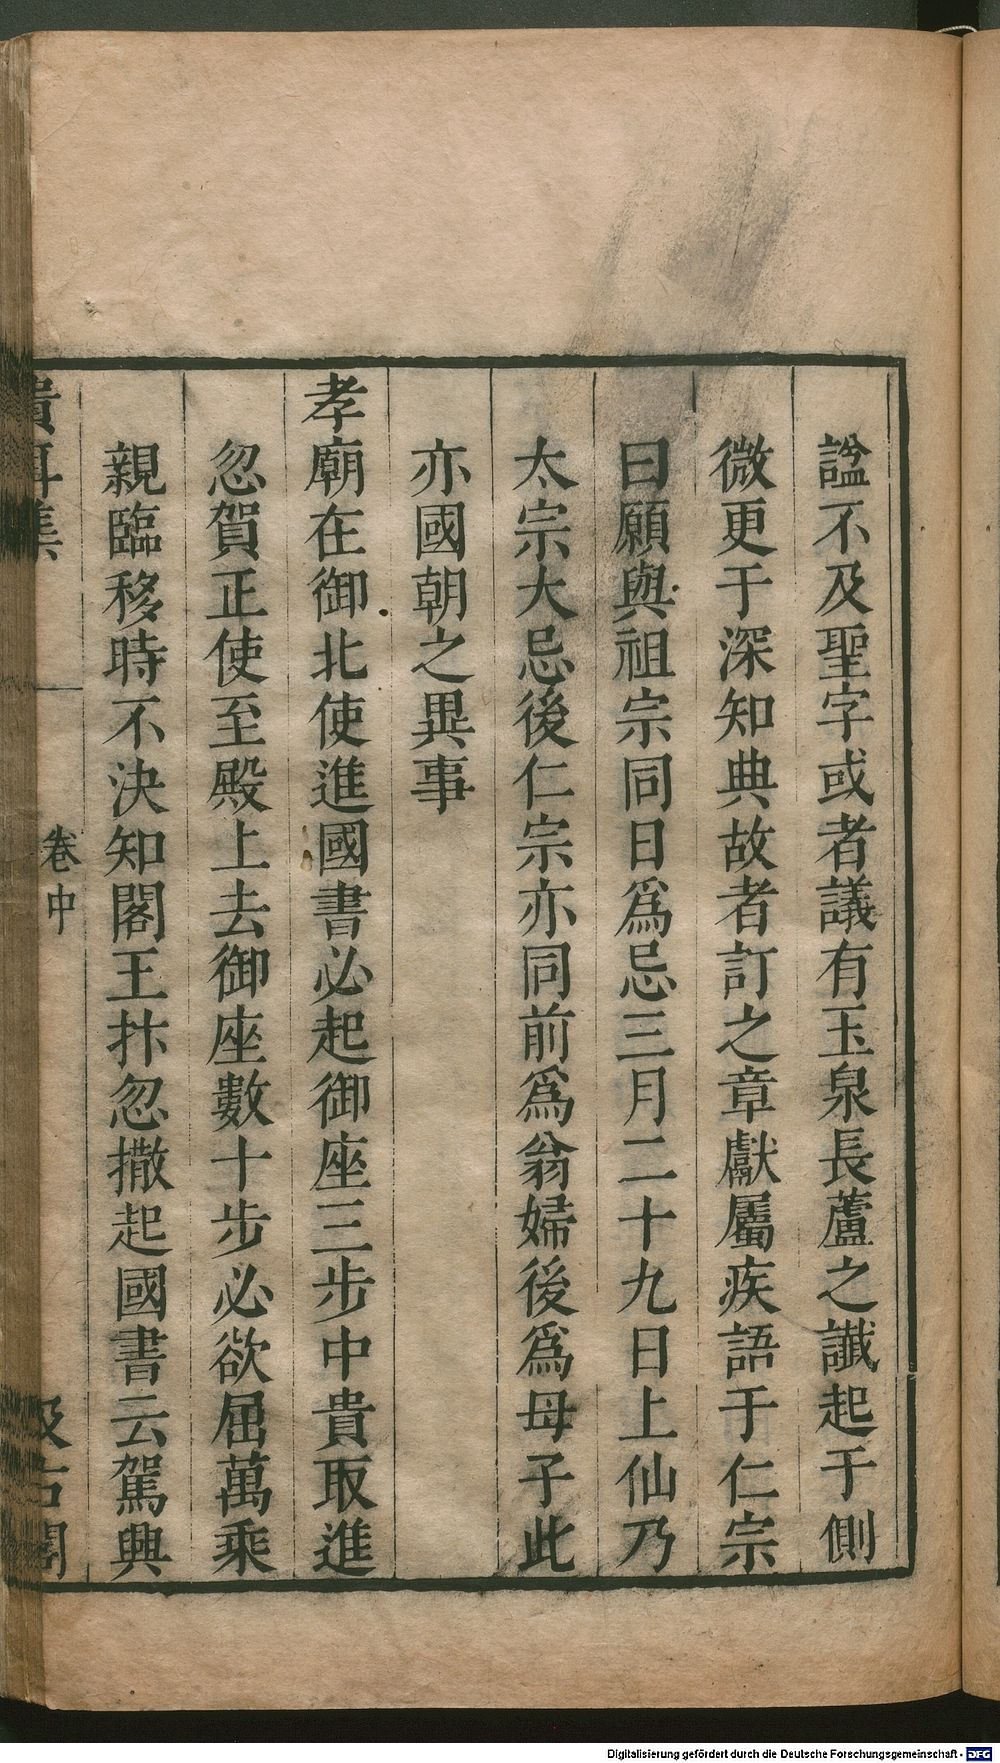 諡不及聖字或者議有玉泉長蘆之讖起于側
微更于深知典故者訂之章獻屬疾語于仁宗
曰願與祖宗同日爲忌三月二十九日上仙乃
太宗大忌後仁宗亦同前爲翁婦後爲母子此
亦國朝之異事
孝廟在御北使進國書必起御座三步中貴取進
忽賀正使至殿上去御座數十步必欲屈萬乘
親臨移時不決知閤王抃忽撒起國書云駕興
卷中
Digitalisierung gefördert durch die Deutsche Forschungsgemeinschaft - DFG